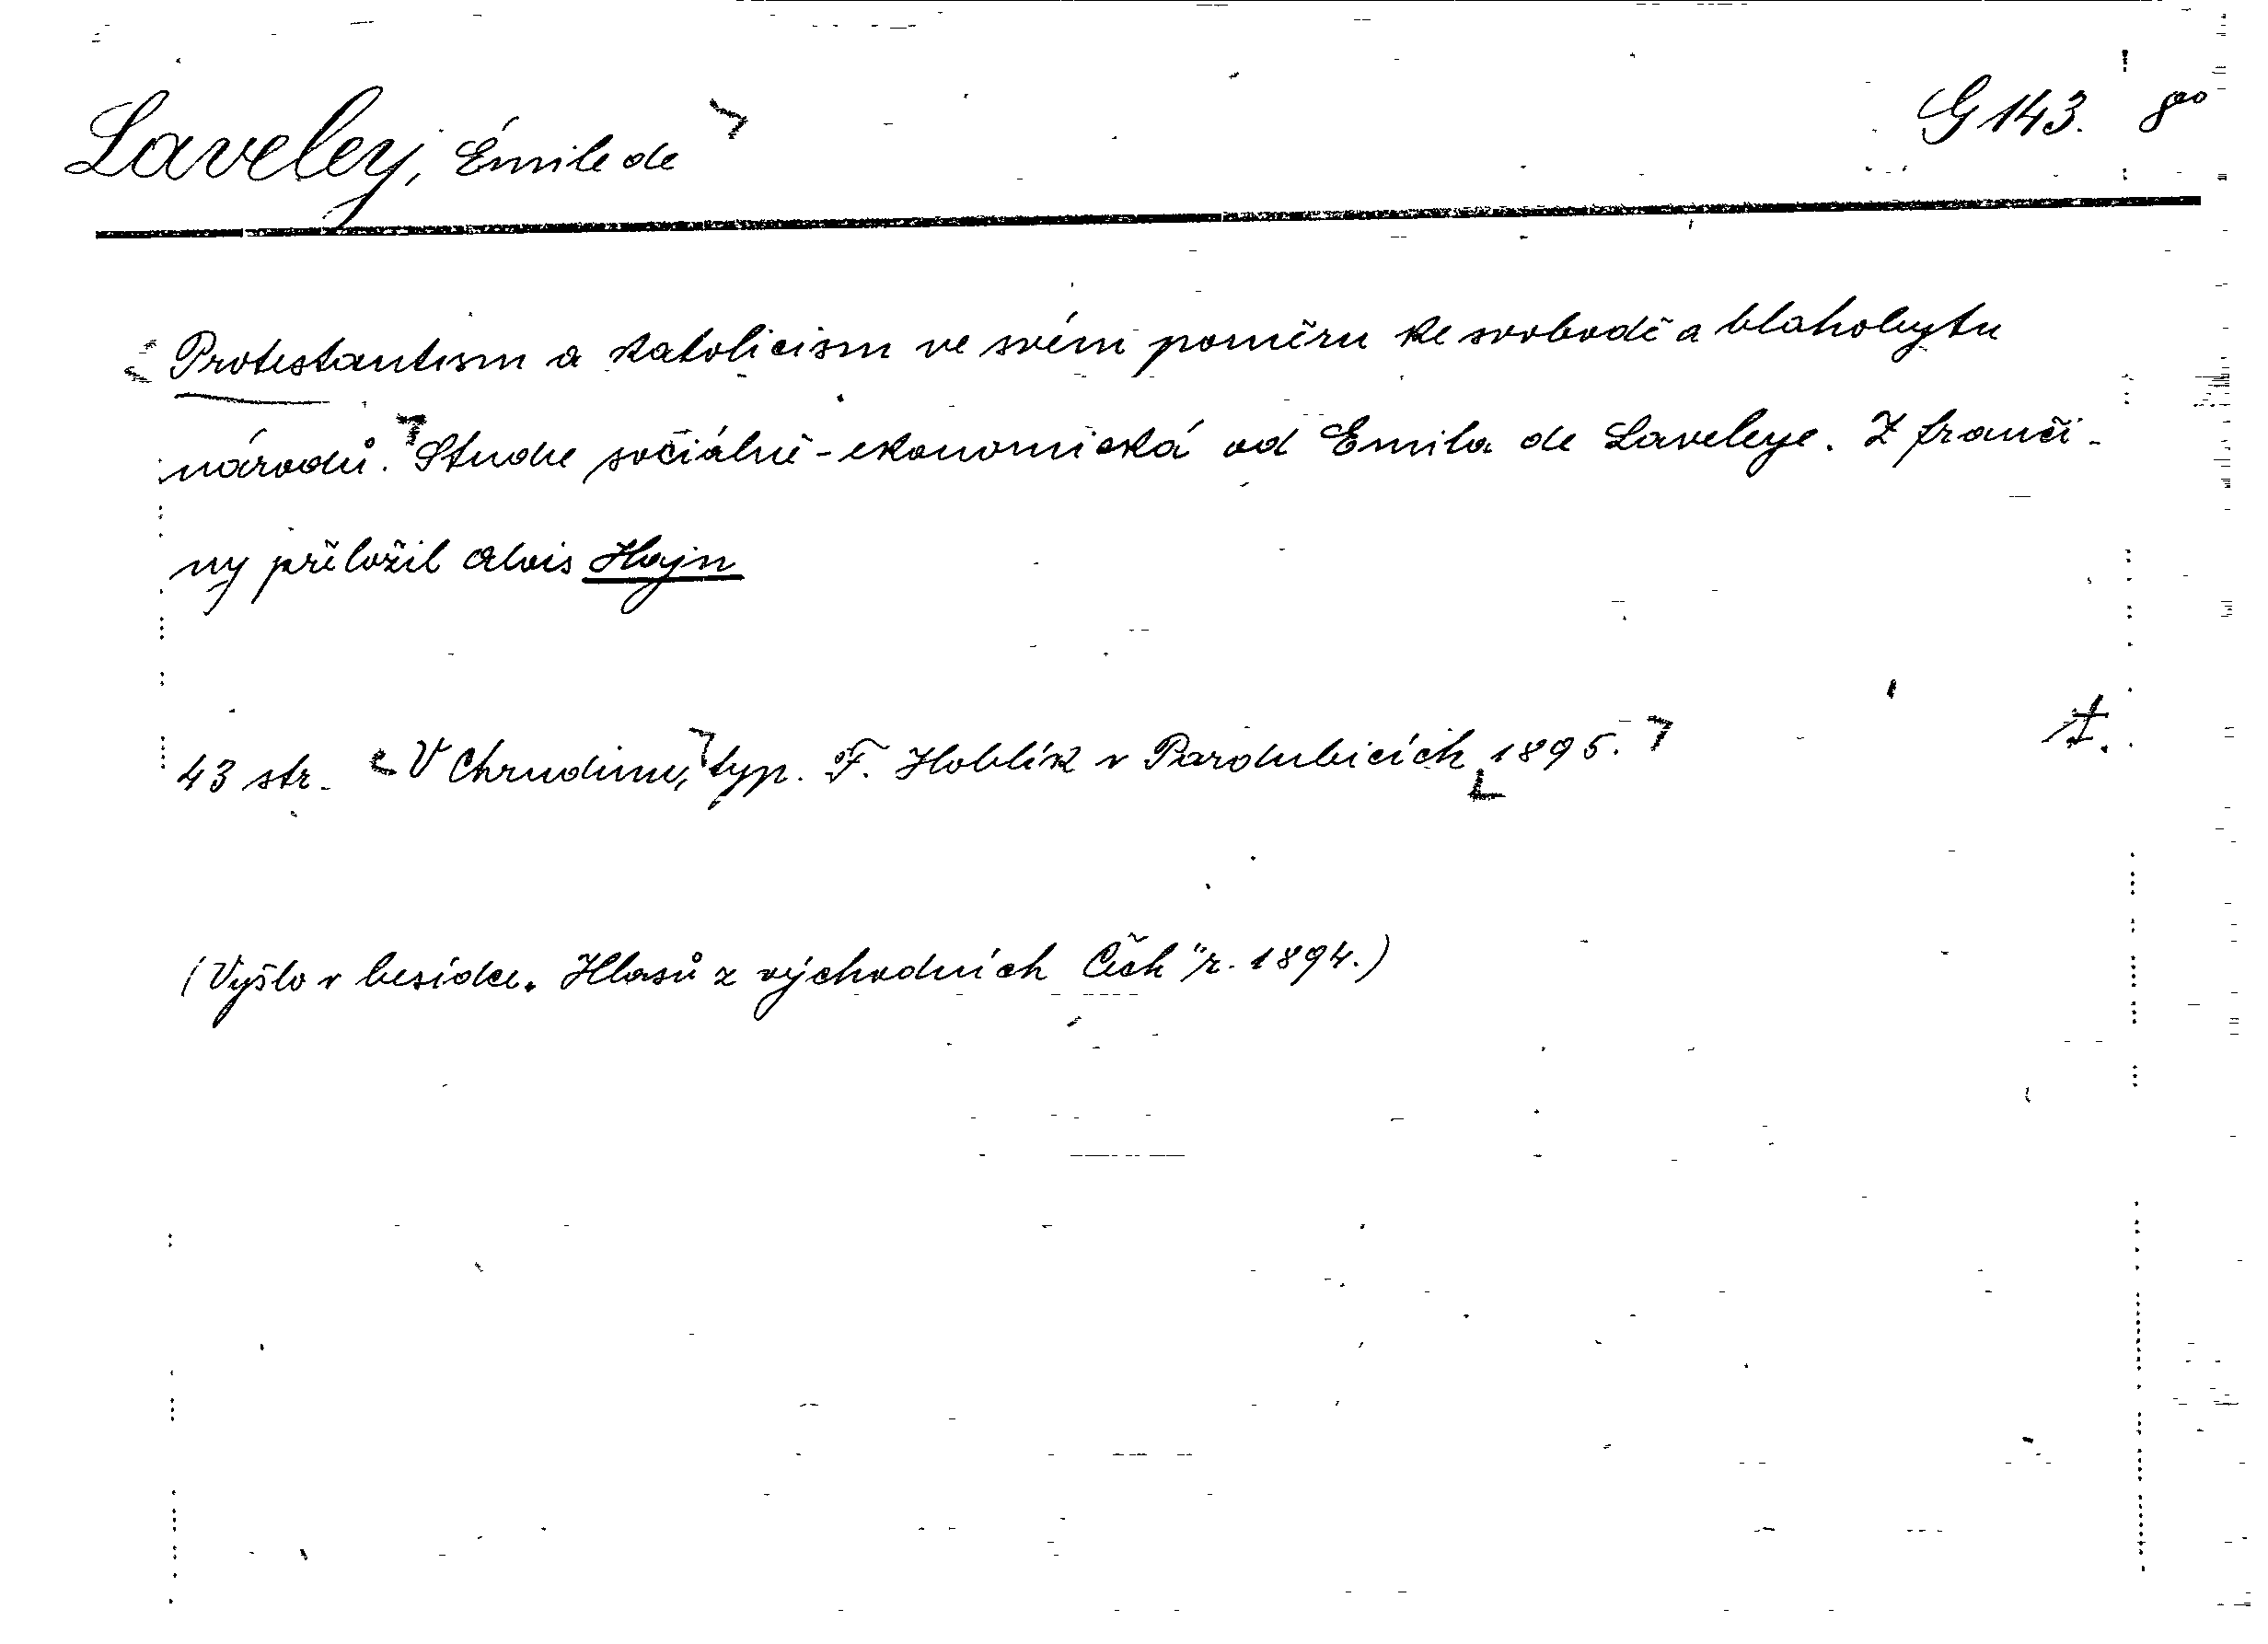 Laveley, Émile de
G 143. 8vo
Protestantism a katolicism ve svém poměru ke svobodě a blahobytu
národů. Studie sociálně-ekonomická od Emila de Laveleye. Z franči-
ny přeložil Alois Hajn
43 str. V Chrudimi, typ. F. Hoblík v Pardubicích 1895.
(Vyšlo v besídce „Hlasů z východních Čech" r. 1894.)